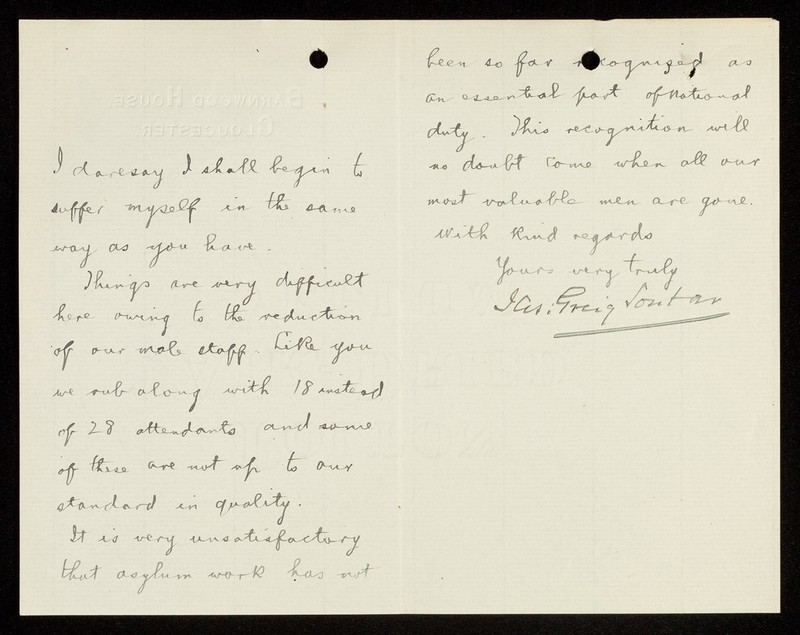 I daresay I shall begin to
suffer myself in the same
way as you have.
Things are very difficult
here owing to the reduction
of our male staff. Like you
we rub along with 18 instead
of 28 attendants and some
of these are not up to our
standard in quality.
It is very unsatisfactory
that asylum work has not
been so far recognized as
an essential part of National
duty. This recognition will
no doubt come when all our
most valuable men are gone.
With kind regards
Yours very truly
Jas: Greig Soutar
BARNWOOD HOUSE,
GLOUCESTER.